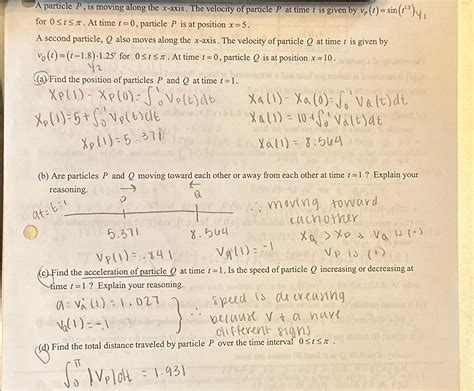 A particle P, is moving along the x-axis. The velocity of particle P at time t is given by v_P(t) = sin(t^1.5) y₁
for 0≤t≤π. At time t=0, particle P is at position x=5.
A second particle, Q also moves along the x-axis. The velocity of particle Q at time t is given by
v_Q(t)=(t−1.8)·1.25^t for 0≤t≤π. At time t=0, particle Q is at position x=10.
y₂
(a) Find the position of particles P and Q at time t=1.
Xp(1) - Xp(0) = ∫₀¹ Vp(t)dt
Xp(1) = 5 + ∫₀¹ Vp(t)dt
Xp(1) = 5.371
Xa(1) - Xa(0) = ∫₀¹ Va(t)dt
Xa(1) = 10 + ∫₀¹ Va(t)dt
Xa(1) = 8.564
(b) Are particles P and Q moving toward each other or away from each other at time t=1? Explain your
reasoning.
→ ←
at t=1 P Q
5.371 8.564
Vp(1) = .841 VQ(1) = -1
∴ moving toward
eachother
XQ > XP & VQ is (-)
VP is (+)
(c) Find the acceleration of particle Q at time t=1. Is the speed of particle Q increasing or decreasing at
time t=1? Explain your reasoning.
a = VQ'(1) = 1.027
VQ(1) = -1
∴ speed is decreasing
because v + a have
different signs
(d) Find the total distance traveled by particle P over the time interval 0≤t≤π.
∫₀^π |Vp|dt = 1.931